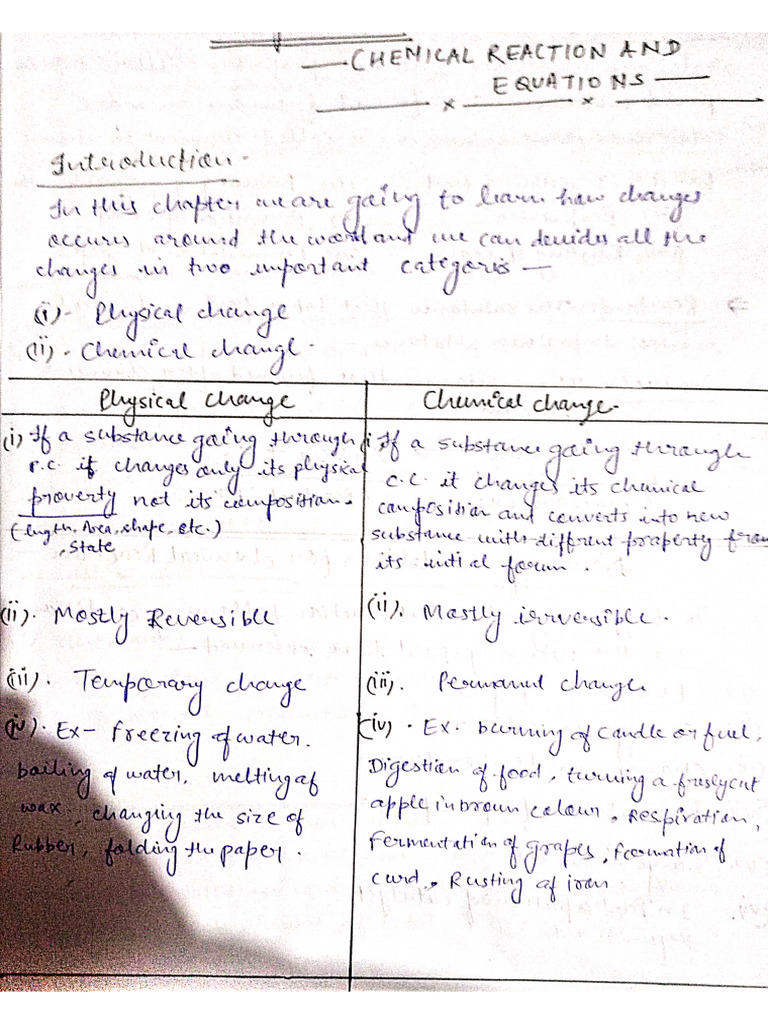 CHEMICAL REACTION AND
EQUATIONS
Introduction -
In this chapter we are going to learn how changes
occurs around the word and we can devides all the
changes in two important categories —
(i) - Physical change
(ii) - Chemical change -
Physical change
(i) If a substance going through
P.C. if changes only its physical
proverty not its composition.
(length, Area, shape, etc.)
, State
(ii). Mostly Reversible
(iii). Temporary change
(iv). Ex - freezing of water.
boiling of water, melting of
wax, changing the size of
Rubber, folding the paper.
Chemical change -
(i) If a substance going through
C.C. it changes its chemical
composition and converts into new
substance with diffrent property from
its initial form.
(ii). Mostly irrversible.
(iii). Permanent change
(iv) . Ex. burning of candle or fuel,
Digestion of food, turning a freslycut
apple in brown colour, Respiration,
Fermentation of grapes, Formation of
curd, Rusting of iron